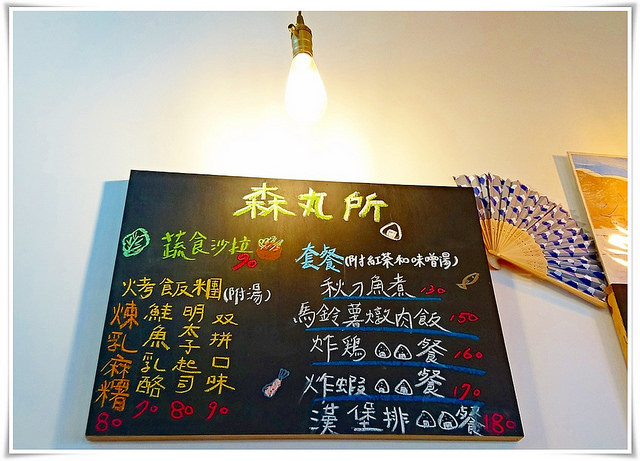 森丸所
蔬食沙拉
90
烤飯糰(附湯)
煉乳麻糬
80
鮭魚乳酪
70
明太子起司
80
双拼口味
90
套餐(附紅茶和味噌湯)
秋刀魚煮 130
馬鈴薯燉肉飯 150
炸鶏🍙🍙餐 160
炸蝦🍙🍙餐 170
漢堡排🍙🍙餐 180